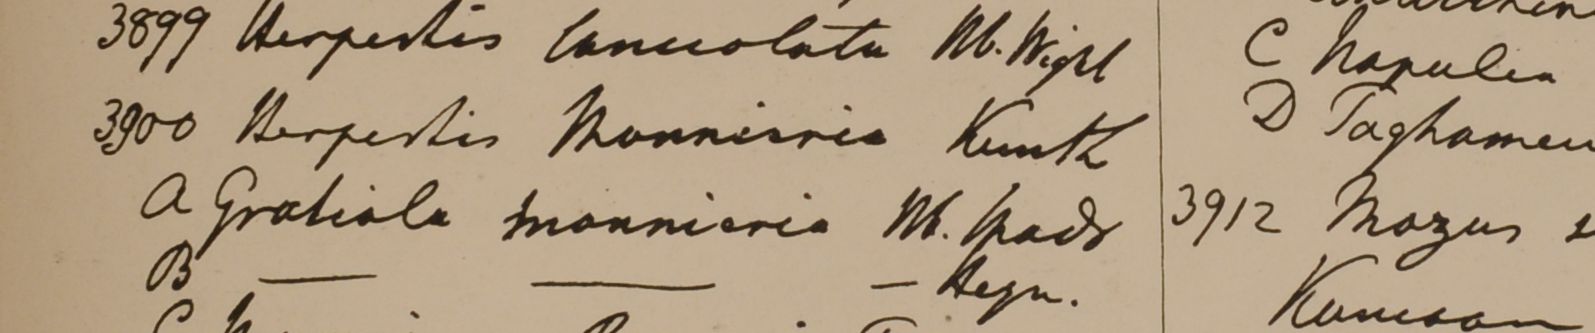 3899 Herpestis lanceolata Hb. Wight
3900 Herpestis Monnieria Kunth
A Gratiola monnieria Hb. Madr
B — — — Heyn.
C Napulea
D Taghamen
3912 Mazus